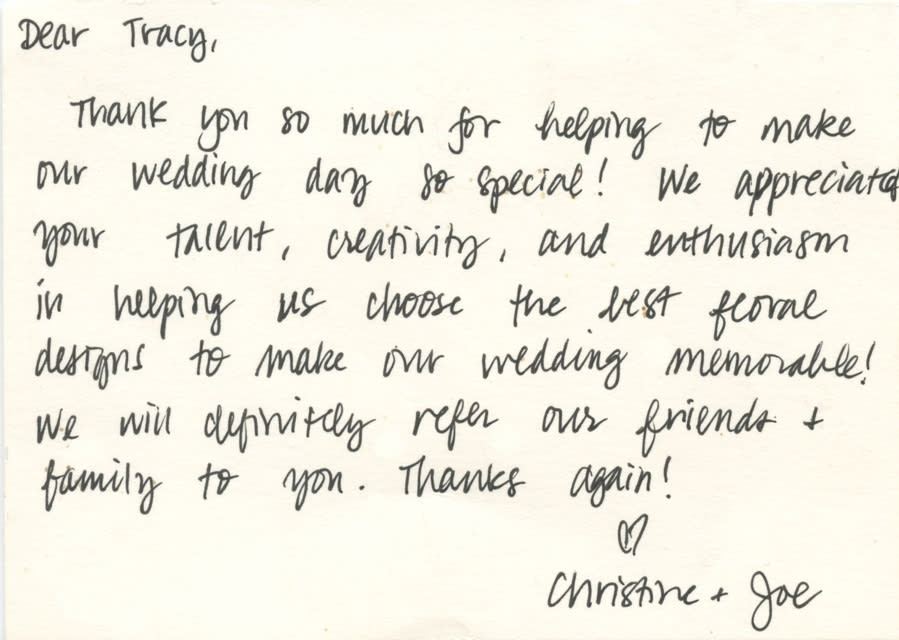 Dear Tracy,
Thank you so much for helping to make
our wedding day so special! We appreciated
your talent, creativity, and enthusiasm
in helping us choose the best floral
designs to make our wedding memorable!
We will definitely refer our friends +
family to you. Thanks again!
♡
Christine + Joe